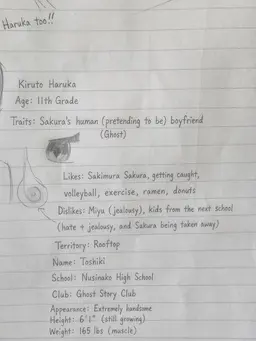 Haruka too!!
Kiruto Haruka
Age: 11th Grade
Traits: Sakura's human (pretending to be) boyfriend
(Ghost)
Likes: Sakimura Sakura, getting caught,
volleyball, exercise, ramen, donuts
Dislikes: Miyu (jealousy), kids from the next school
(hate + jealousy, and Sakura being taken away)
Territory: Rooftop
Name: Toshiki
School: Nusinako High School
Club: Ghost Story Club
Appearance: Extremely handsome
Height: 6'1" (still growing)
Weight: 165 lbs (muscle)